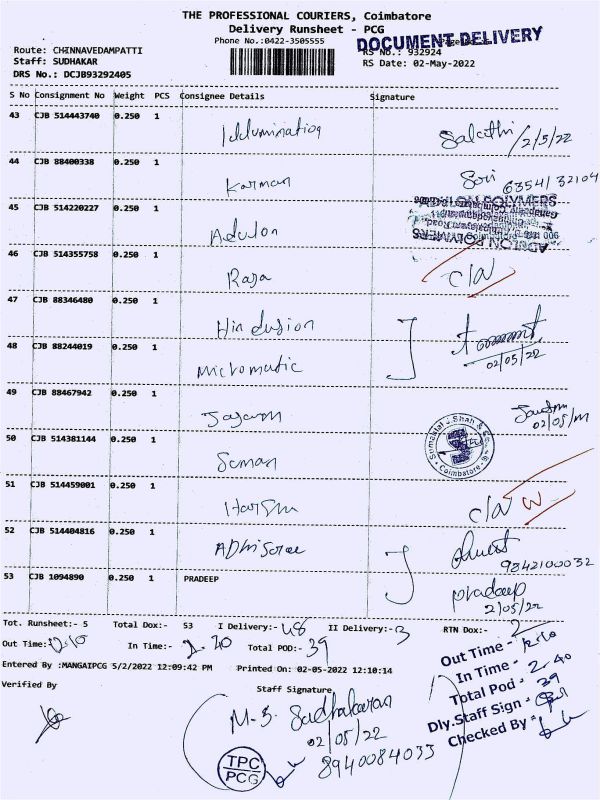 THE PROFESSIONAL COURIERS, Coimbatore
Delivery Runsheet - PCG
Phone No.:0422-3505555
DOCUMENT DELIVERY
Route: CHINNAVEDAMPATTI
RS No.: 932924
Staff: SUDHAKAR
RS Date: 02-May-2022
DRS No.: DCJB93292405
S No Consignment No Weight PCS Consignee Details Signature
43 CJB 514443740 0.250 1 Illumination Sakthi /2/5/22
44 CJB 88400338 0.250 1 Karman Sori 6354132104
45 CJB 514220227 0.250 1 Adulon ADULON POLYMERS
46 CJB 514355758 0.250 1 Raja C/N
47 CJB 88346480 0.250 1 Hindusion
48 CJB 88244019 0.250 1 Micromatic 02/05/22
49 CJB 88467942 0.250 1 02/05/
50 CJB 514381144 0.250 1 Suman Sumanlal - Shah & Co. Coimbatore
51 CJB 514459001 0.250 1 Harsh C/N
52 CJB 514404816 0.250 1 9842100032
53 CJB 1094890 0.250 1 PRADEEP pradeep
2/05/22
Tot. Runsheet:- 5 Total Dox:- 53 I Delivery:- 48 II Delivery:- 3 RTN Dox:- 2
Out Time:- 12.10 In Time:- 2.40 Total POD:- 39
Entered By :MANGAIPCG 5/2/2022 12:09:42 PM Printed On: 02-05-2022 12:10:14
Verified By
Staff Signature
M-S. Sudhakaran
02/05/22
8940084033
TPC
PCG
Out Time - 12.10
In Time - 2.40
Total Pod - 39
Dly.Staff Sign -
Checked By -